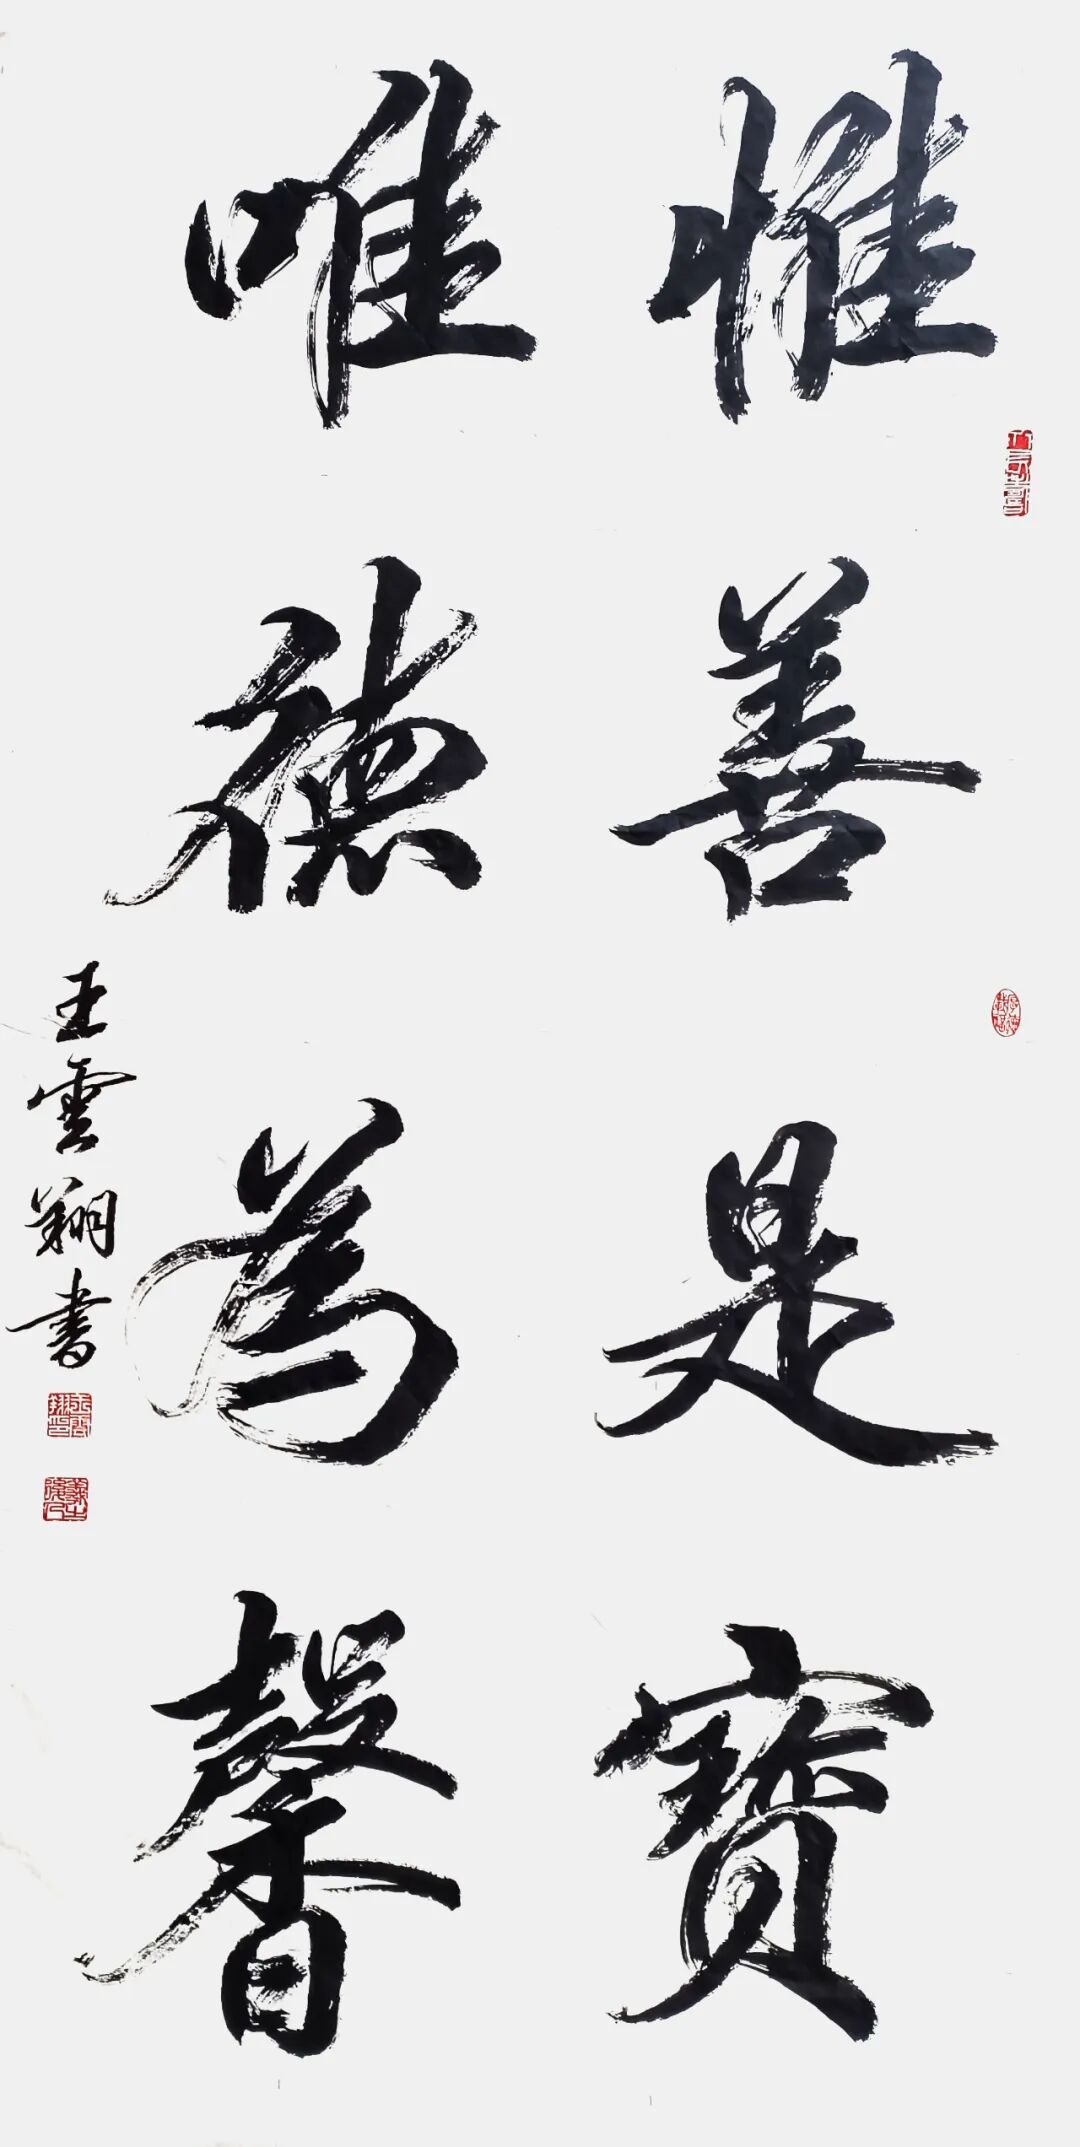 惟善是寶
唯德為馨
王雲翔書